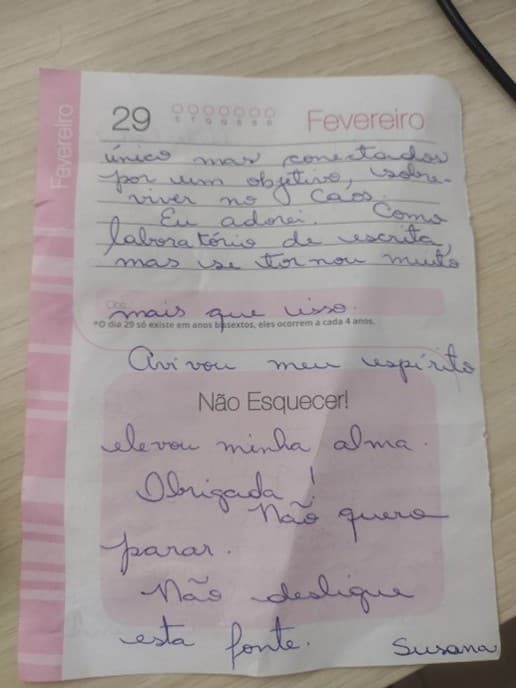 Fevereiro
29
S T Q Q S S D
Fevereiro
único mas conectados
por um objetivo, sobre-
viver no Caos.
Eu adorei. Como
laboratório de escrita,
mas se tornou muito
Obs.
mais que isso.
*O dia 29 só existe em anos bissextos, eles ocorrem a cada 4 anos.
Avivou meu espírito
Não Esquecer!
elevou minha alma.
Obrigada!
Não quero
parar.
Não desligue
esta fonte.
Susana